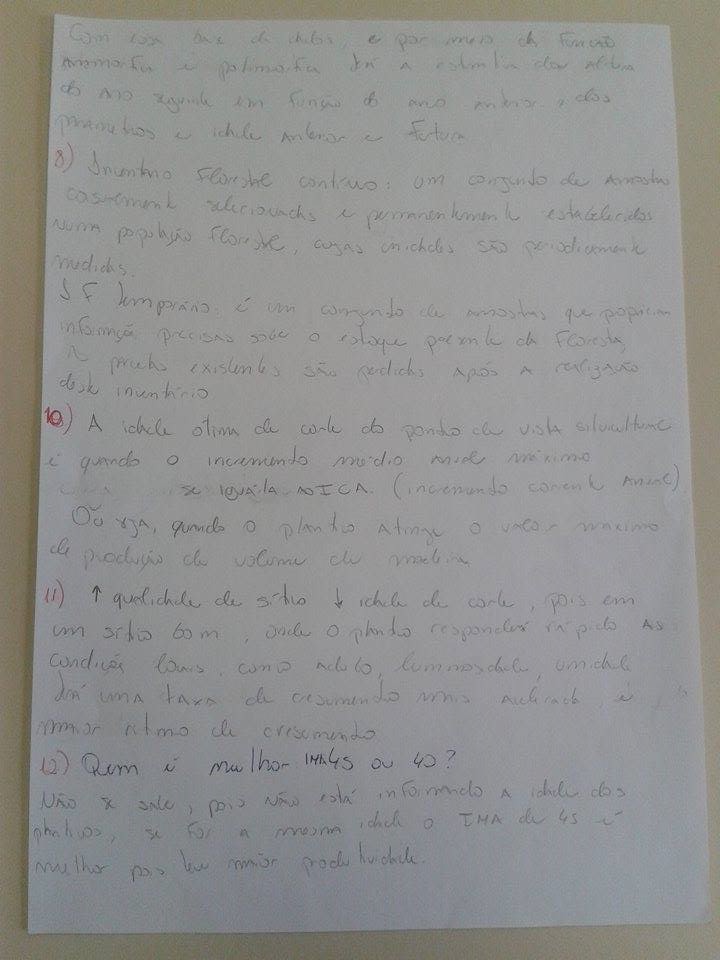 Com essa base de dados, e por meio da Função
Anamorfica e polimorfica dá a estimativa das Altura
do Ano seguinte em função do ano anterior, e dos
parametros e idade Anterior e Futura
8) Inventário Florestal contínuo: um conjundo de Amostras
casualmente selecionadas e permanentemente estabelecidos
numa população Florestal, cujas unidades são periodicamente
medidas.
I F Temporário: é um conjundo de amostras que propiciam
informação precisas sobre o estoque presente da Floresta,
As parcelas existentes são perdidas Após A realização
deste inventário
10) A idade ótima de corte do pondo de vista silvicultural
é quando o incremento médio Anual máximo
se iguala ao ICA. (incremento corrente Anual)
Ou seja, quando o plantio Atinge o valor máximo
de produção de volume de madeira
11) ↑ qualidade de sítio ↓ idade de corte, pois em
um sítio bom, onde o plantio responderá rápido As
condição locais, como Adubo, luminosidade, umidade
terá uma taxa de crescimendo mais Acelerada, é
maior ritmo de crescimendo
12) Quem é melhor IMA 45 ou 40?
Não se sabe, pois não está informando A idade dos
plantios, se for a mesma idade o IMA de 45 é
melhor pois teve maior produtividade.